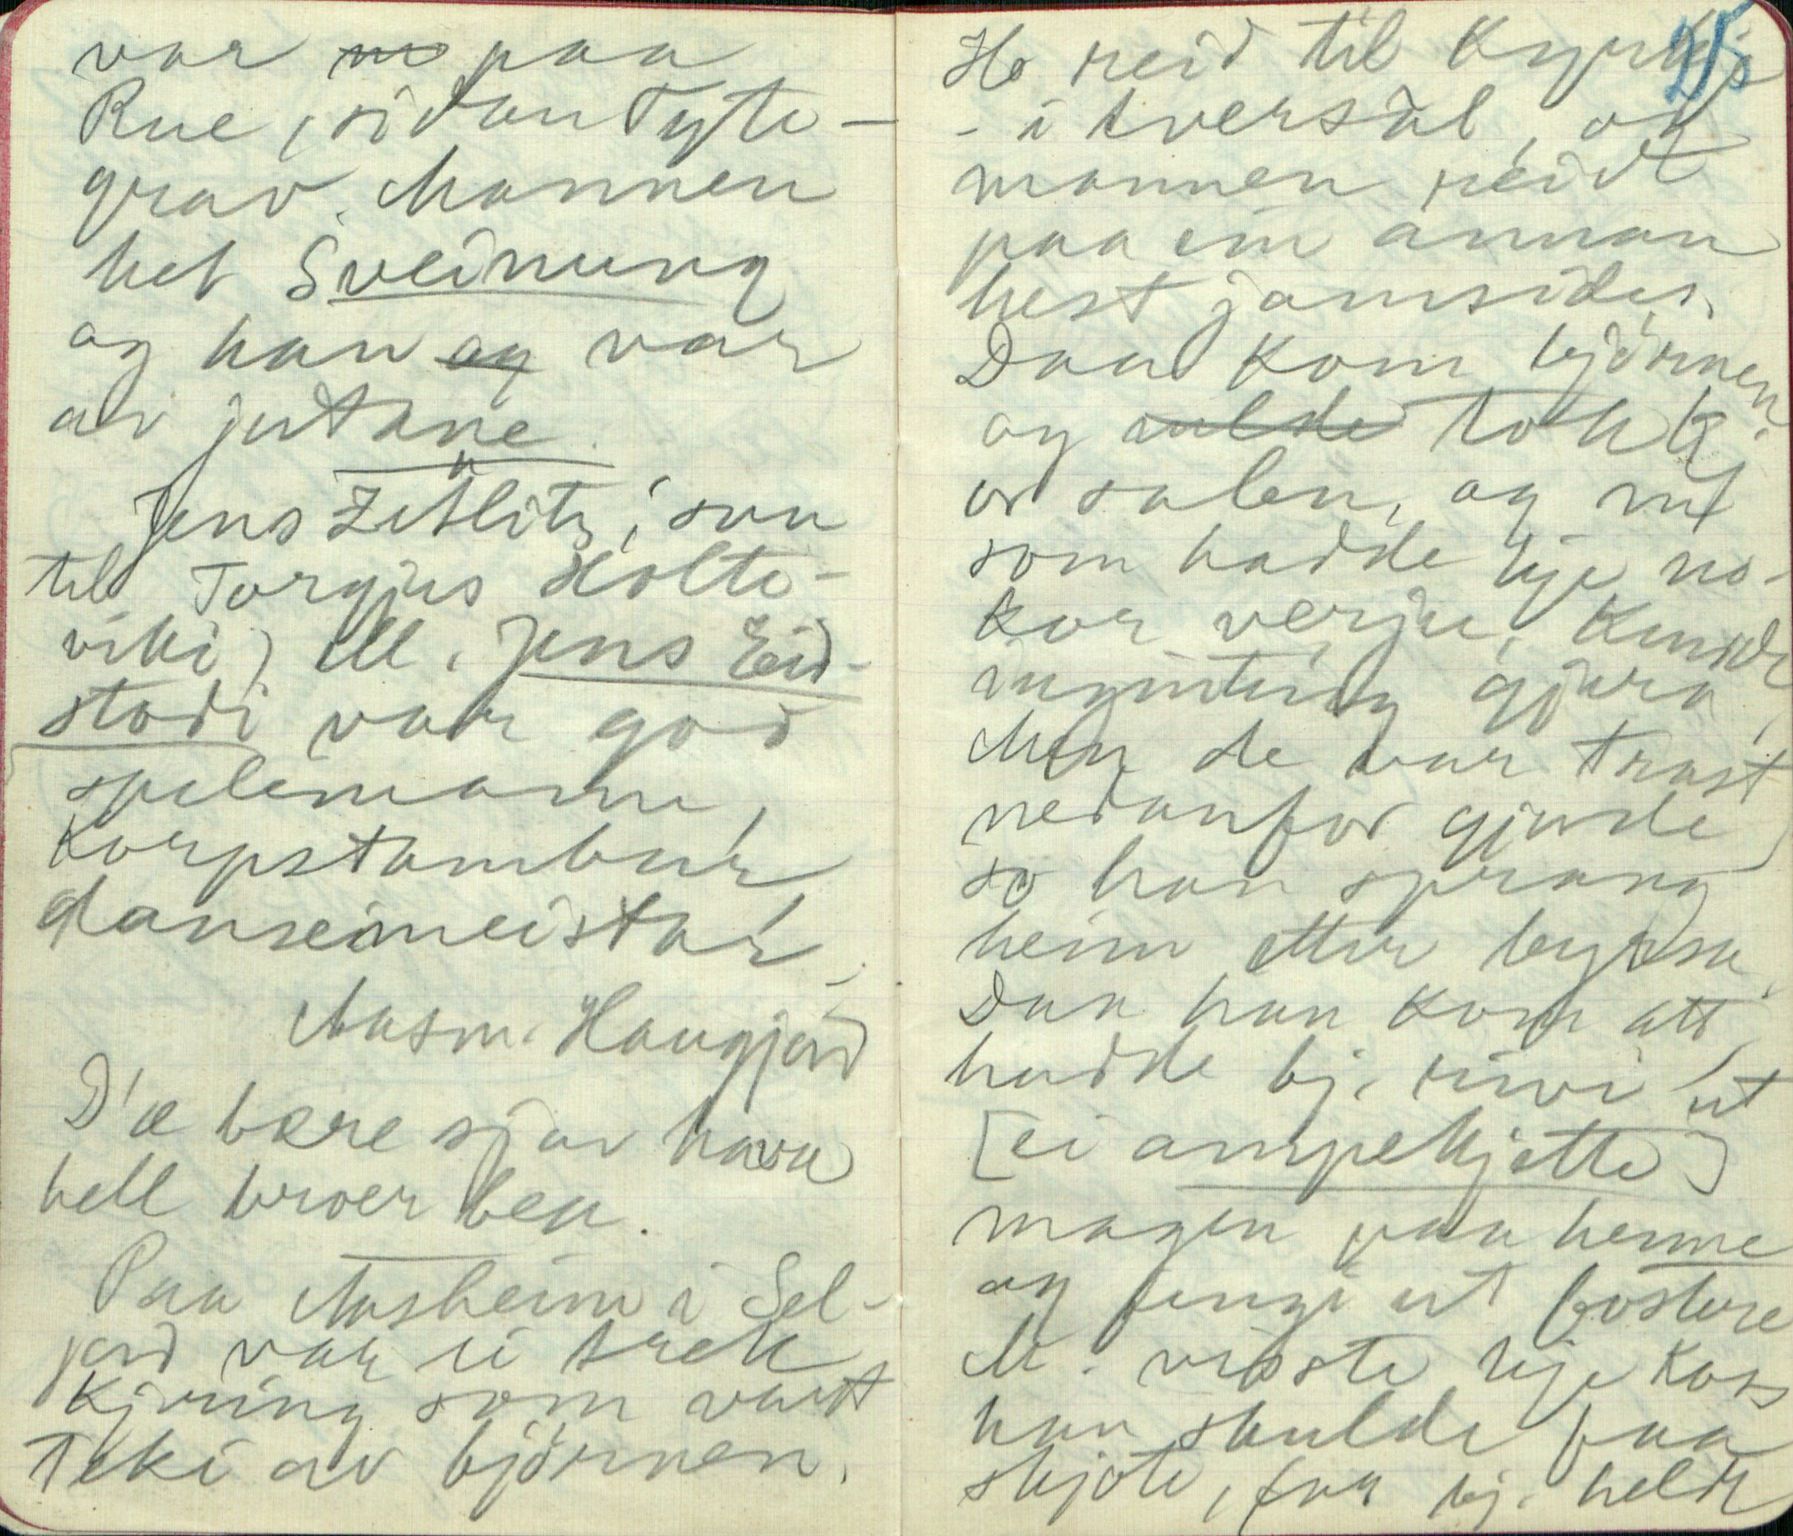 var no paa
Rue, sidan Tyte-
grav. Mannen
het Sveinung
og han og var
av jutane.
Jens Zetlitz, son
til Torgjus Holte-
viki, ell. Jens Eid-
stodi var god
spelemann,
korpstambur
dansemeistar.
Aasm. Haugjord
D'æ bere sjøv hava
hell broer bea.
Paa Aasheim i Sel-
jord var ei
kjering som vart
teki av bjørnen.
25
Ho reid til Kyrkje
- i tversål, og
mannen reidt
paa ein annan
hest jamsides.
Daa kom bjørnen
og vilde tok K
or salen, og M
som hadde kje no-
kor verju, kunde
inginting gjera,
Men de var trast
nedanfor gjarde
so han sprang
heim etter byrsa.
Daa han kom att,
hadde bj. rivi ut
[ei ampekjette]
magen paa henne
og fengi ut fostere
M. visste kje koss
han skulde faa
skjote, for bj. heldt